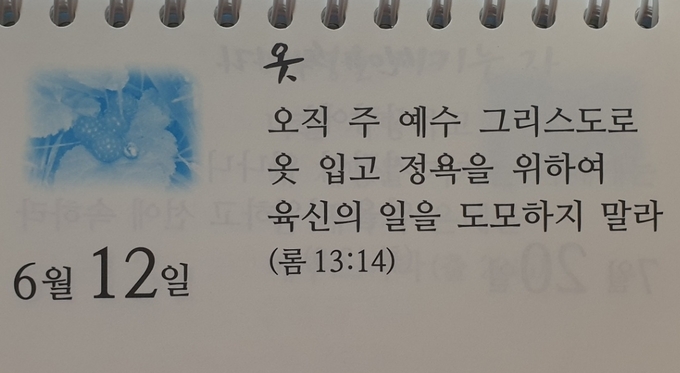 옷
오직 주 예수 그리스도로
옷 입고 정욕을 위하여
육신의 일을 도모하지 말라
(롬 13:14)
6월 12일